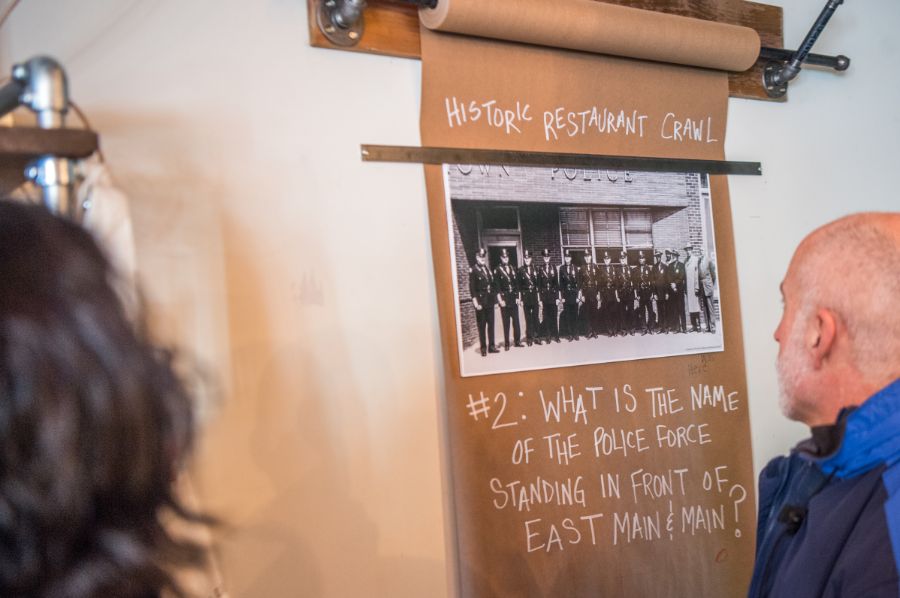 HISTORIC RESTAURANT CRAWL
OWN POLICE
#2: WHAT IS THE NAME
OF THE POLICE FORCE
STANDING IN FRONT OF
EAST MAIN & MAIN?